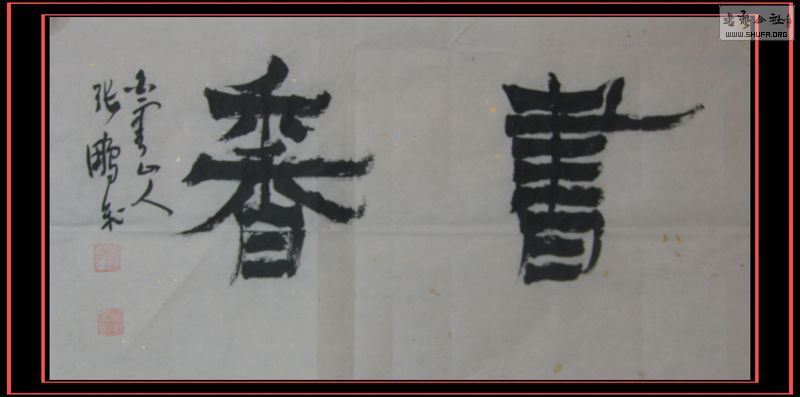 書香
雲山人
张鹏
公社
WWW.SHUFA.ORG